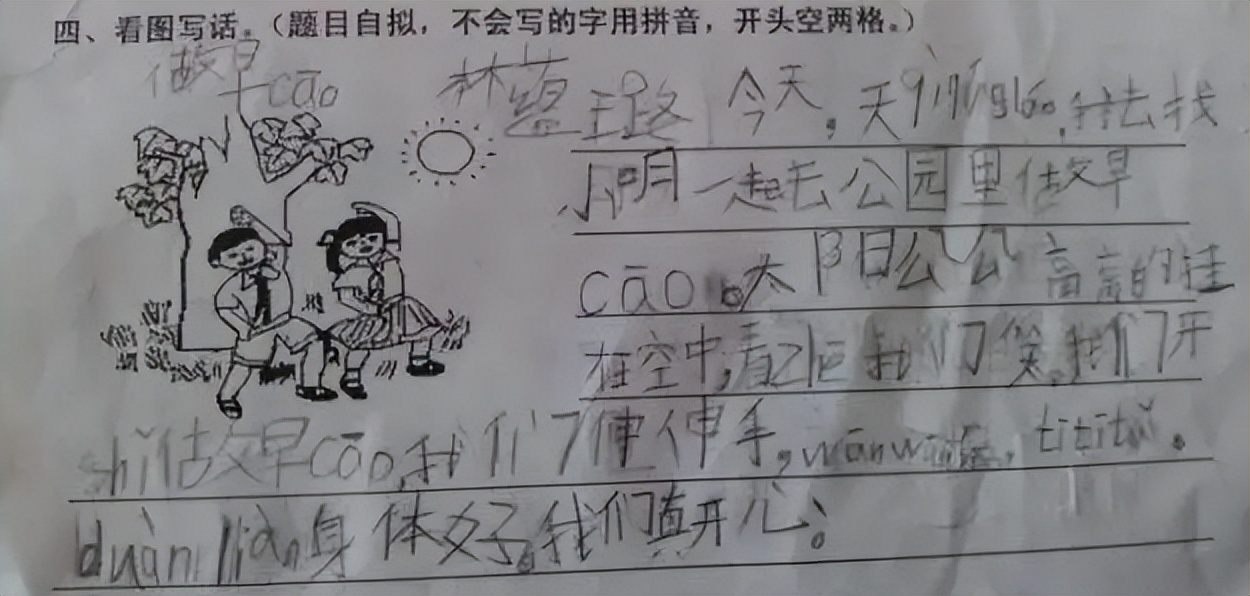 四、看图写话。（题目自拟，不会写的字用拼音，开头空两格。）
做早cāo
今天，天qínglǎo，我去找
小明一起去公园里做早
cāo。太阳公公高高的挂
在空中，看着我们笑，我们开
shǐ做早cāo，我们伸伸手，wānwān腰，tītītuǐ。
duànliàn身体好，我们真开心。